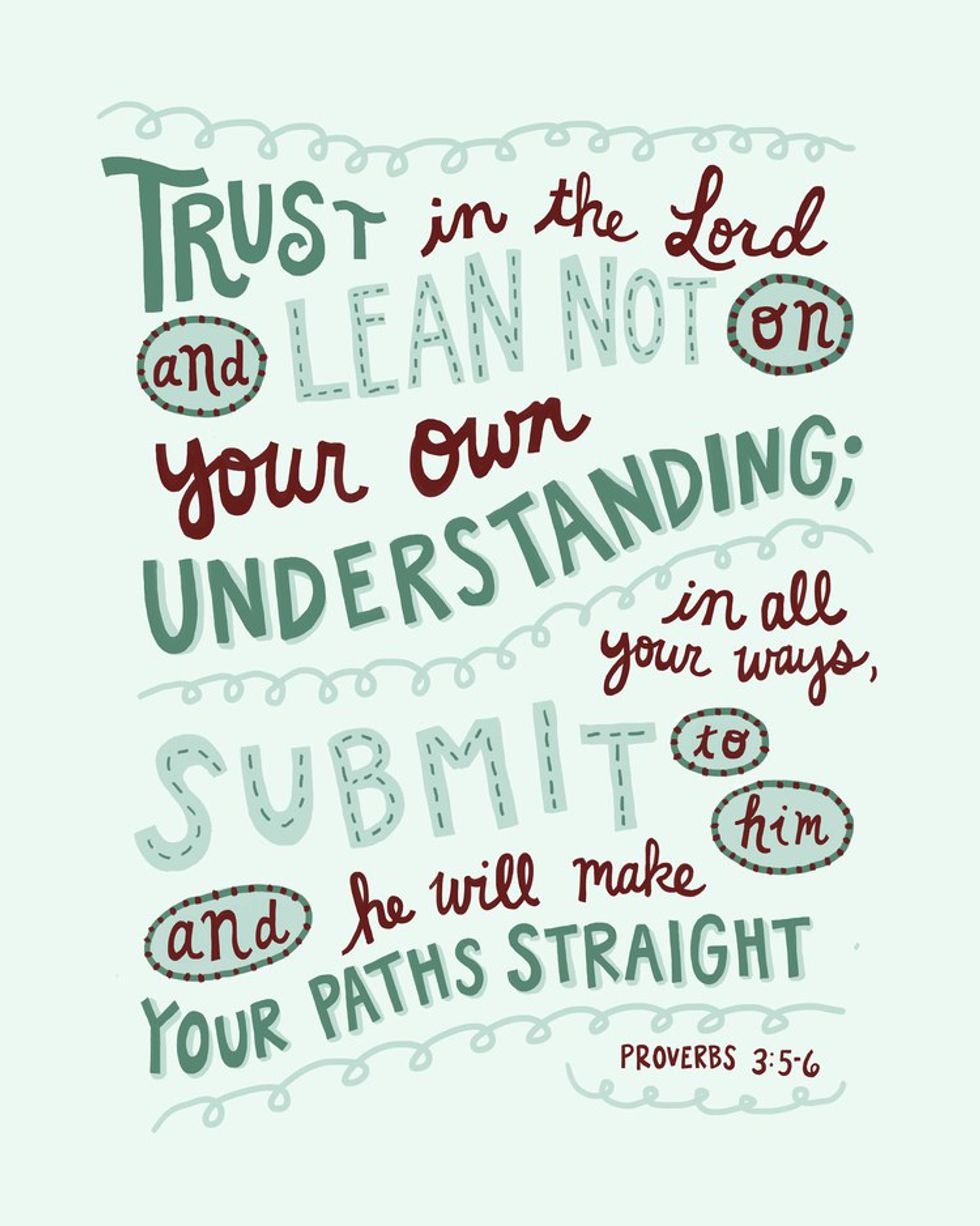 TRUST in the Lord
and LEAN NOT on
your own
UNDERSTANDING;
in all
your ways,
SUBMIT to
him
and he will make
YOUR PATHS STRAIGHT
PROVERBS 3:5-6